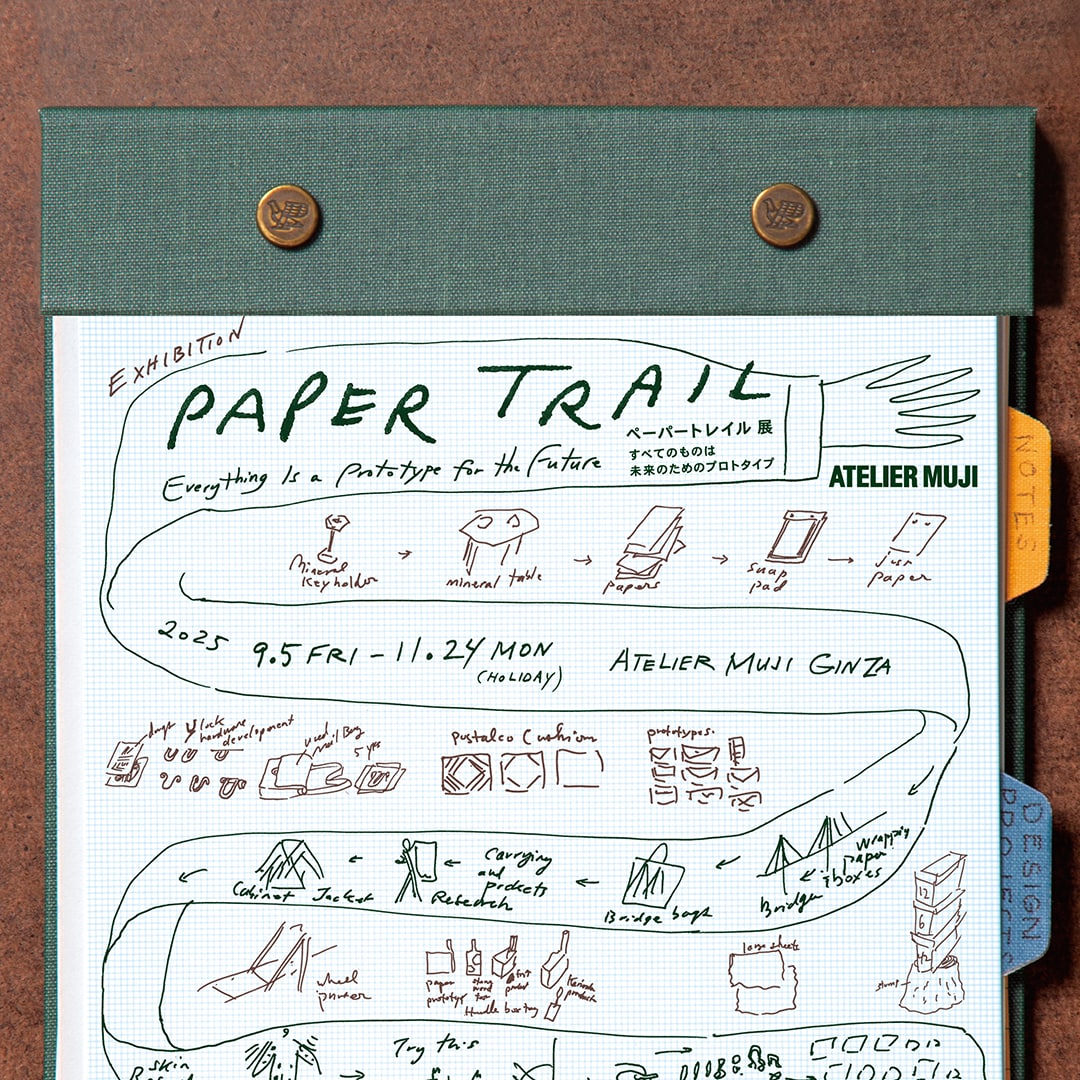 EXHIBITION
PAPER TRAIL
ペーパートレイル 展
Everything Is a Prototype for the Future
すべてのものは
未来のためのプロトタイプ
ATELIER MUJI
NOTES
Mineral
Keyholder
mineral table
papers
snap
pad
just
paper
2025 9.5 FRI – 11.24 MON
(HOLIDAY)
ATELIER MUJI GINZA
lock
hardware
development
used
mail Bag
5 yrs
Postalco Cushion
prototypes.
DESIGN
PROJECTS
Wrapping
paper
boxes
Bridge
Bridge bags
Carrying
and
pockets
Research
Cabinet Jacket
wheel
printer
paper
prototype
first
product
Handle bar bag
product
loose sheets
12
6
stump
skin
Try this